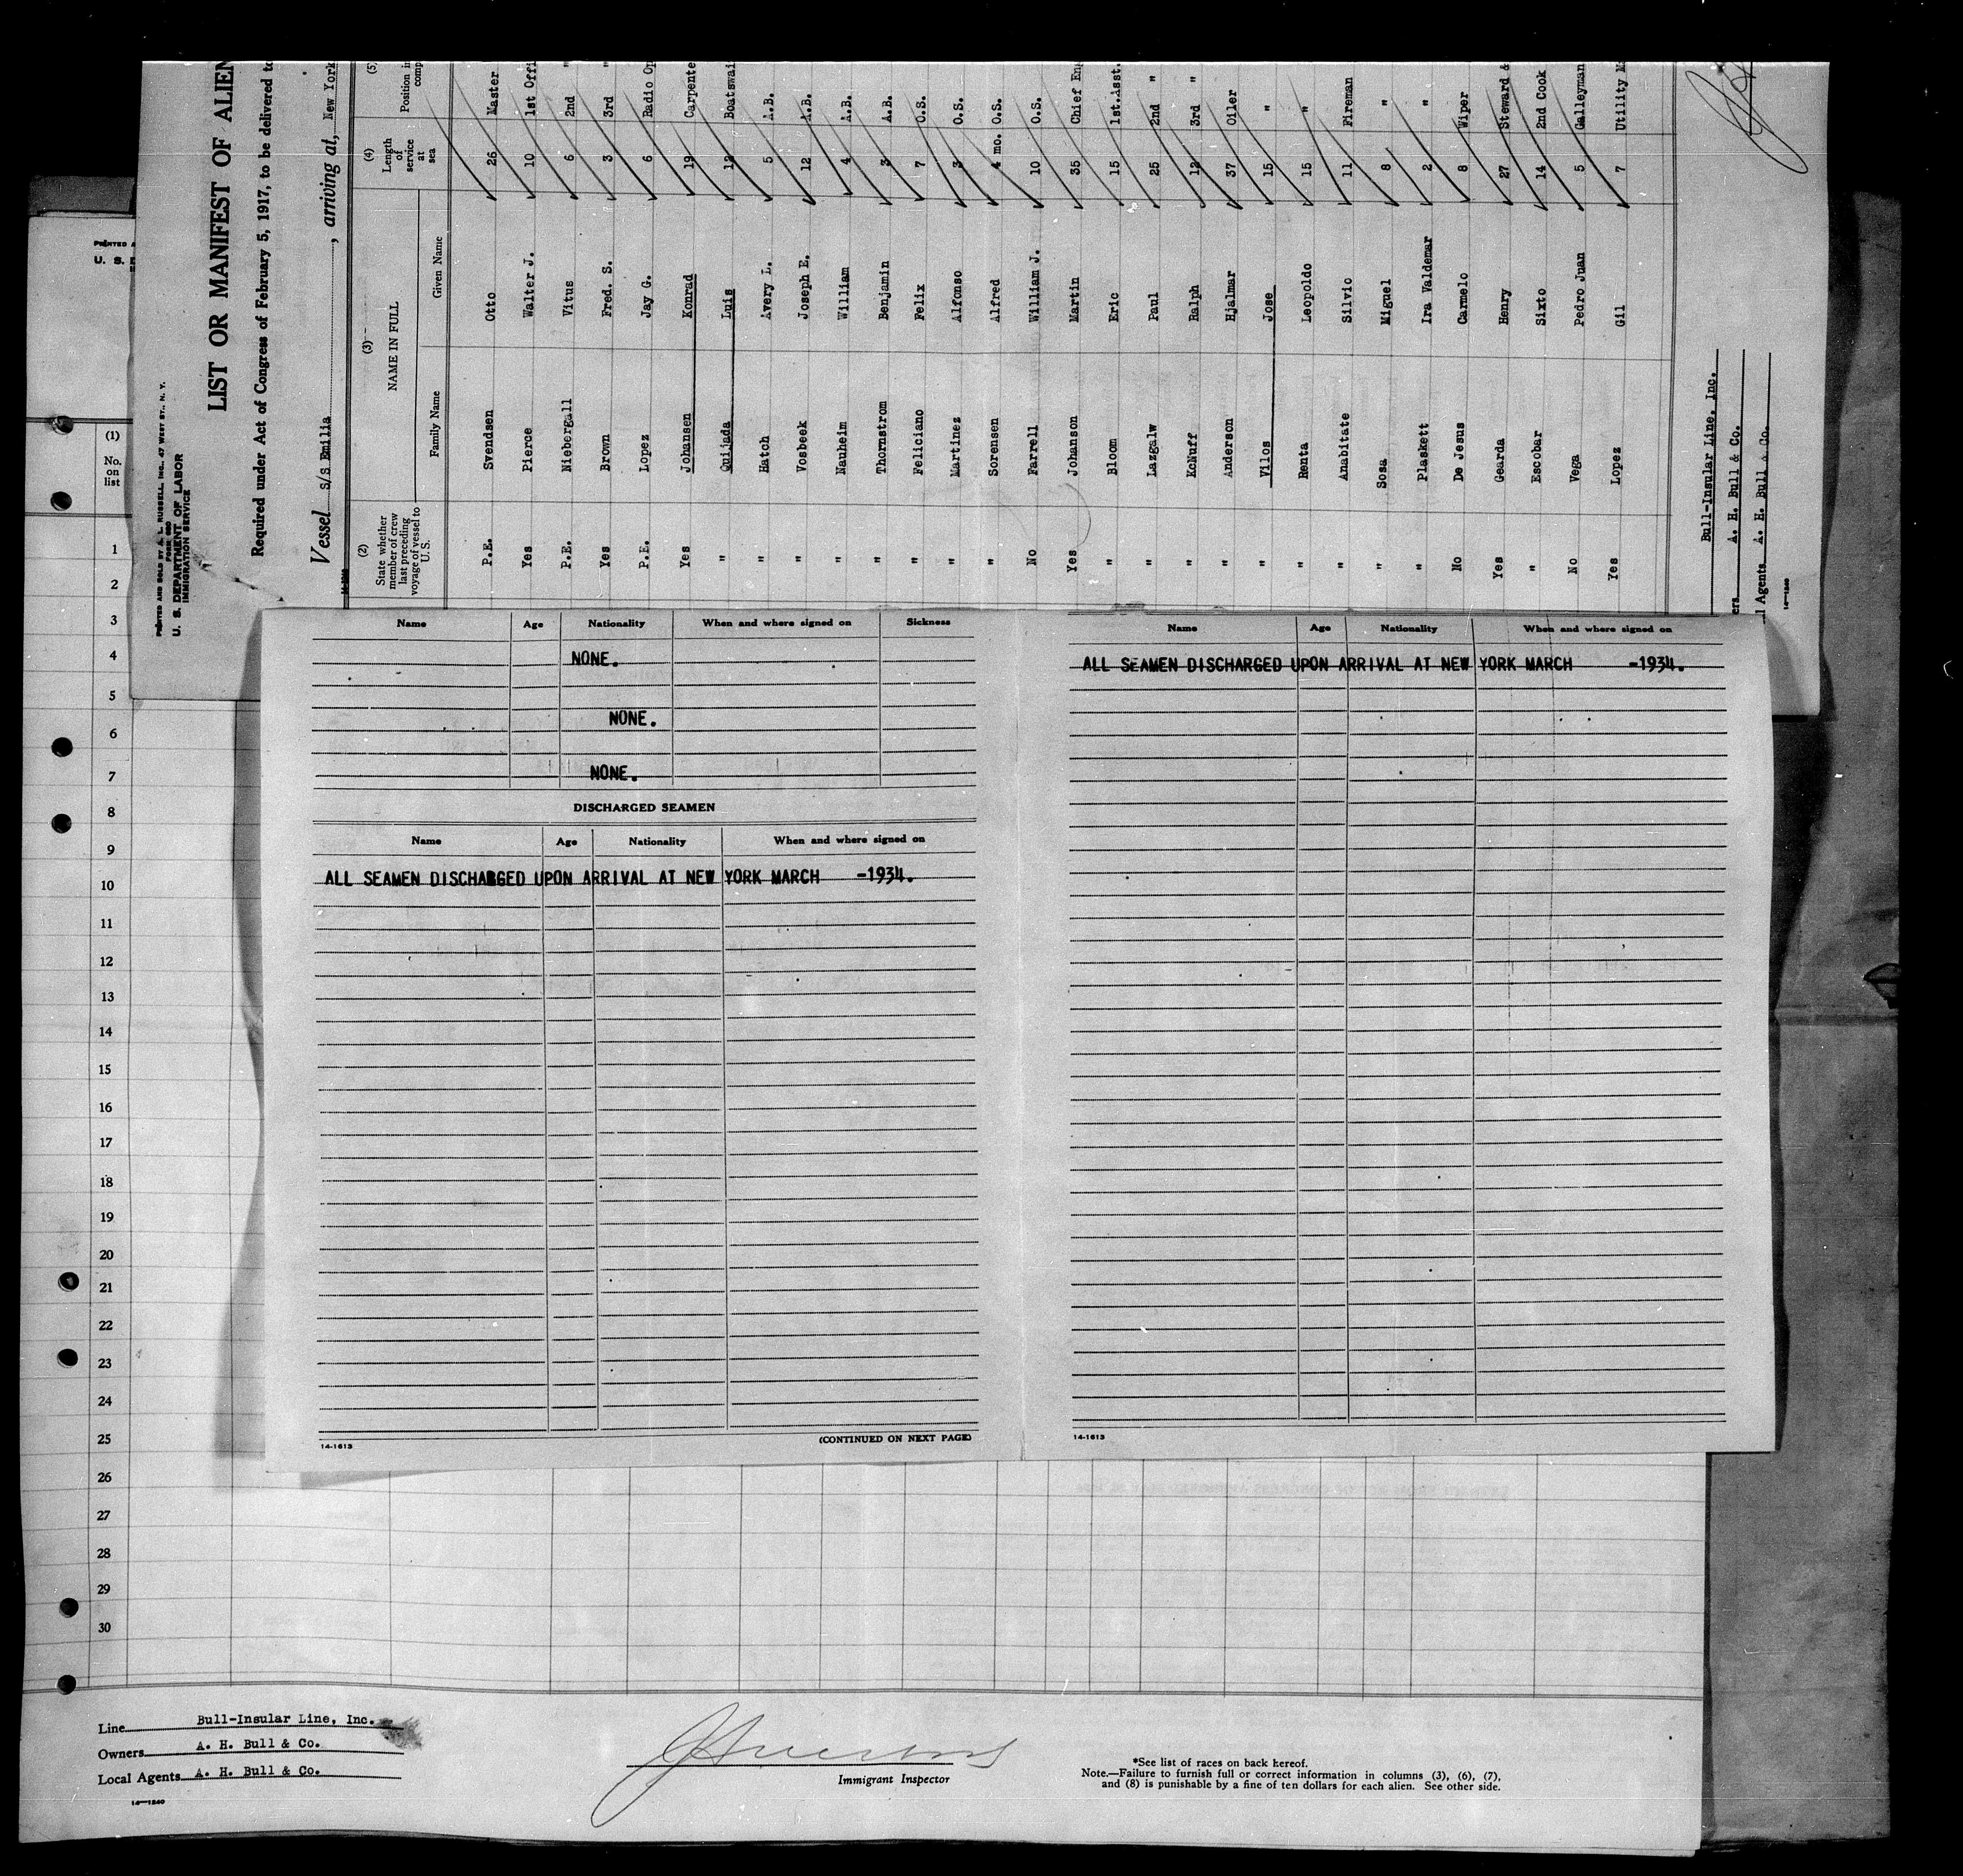 PRINTED AND SOLD BY A. L. RUSSELL, INC., 47 WEST ST., N. Y.
U. S. DEPARTMENT OF LABOR
IMMIGRATION SERVICE
LIST OR MANIFEST OF ALIEN
Required under Act of Congress of February 5, 1917, to be delivered to
Vessel S/S Emilia, arriving at, New York
(2) (3) (4) (5)
State whether member of crew last preceding voyage of vessel to U. S. NAME IN FULL Family Name Given Name Length of service at sea Position in
P.E. Svendsen Otto 26 Master
Yes Pierce Walter J. 10 1st Offi
P.E. Niebergall Vitus 6 2nd "
Yes Brown Fred. S. 3 3rd "
P.E. Lopez Jay G. 6 Radio Op
Yes Johansen Konrad 19 Carpente
" Quijada Luis 12 Boatswai
" Hatch Avery L. 5 A.B.
" Vosbeek Joseph E. 12 A.B.
" Nauheim William 4 A.B.
" Thornstrom Benjamin 3 A.B.
" Feliciano Felix 7 O.S.
" Martinez Alfonso 3 O.S.
" Sorensen Alfred 4 mo. O.S.
No Farrell William J. 10 O.S.
Yes Johanson Martin 35 Chief Eng
" Bloom Eric 15 1st.Asst.
" Lazgalw Paul 25 2nd "
" McNuff Ralph 12 3rd "
" Anderson Hjalmar 37 Oiler
" Vilos Jose 15 "
" Renta Leopoldo 15 "
" Anabitate Silvio 11 Fireman
" Sosa Miguel 8 "
" Plaskett Ira Valdemar 2 "
No De Jesus Carmelo 8 Wiper
Yes Gearda Henry 27 Steward &
" Escobar Sixto 14 2nd Cook
No Vega Pedro Juan 5 Galleyman
Yes Lopez Gil 7 Utility M
Bull-Insular Line, Inc.
A. H. Bull & Co.
l Agents A. H. Bull & Co.
14-1240
PRINTED A
U. S.
(1)
No. on list
1
2
3
4
5
6
7
8
9
10
11
12
13
14
15
16
17
18
19
20
21
22
23
24
25
26
27
28
29
30
Name Age Nationality When and where signed on Sickness
NONE.
NONE.
NONE.
DISCHARGED SEAMEN
Name Age Nationality When and where signed on
ALL SEAMEN DISCHARGED UPON ARRIVAL AT NEW YORK MARCH -1934.
14-1613
(CONTINUED ON NEXT PAGE)
Name Age Nationality When and where signed on
ALL SEAMEN DISCHARGED UPON ARRIVAL AT NEW YORK MARCH -1934.
14-1613
Line Bull-Insular Line, Inc.
Owners A. H. Bull & Co.
Local Agents A. H. Bull & Co.
14-1240
Immigrant Inspector
*See list of races on back hereof.
Note.—Failure to furnish full or correct information in columns (3), (6), (7),
and (8) is punishable by a fine of ten dollars for each alien. See other side.